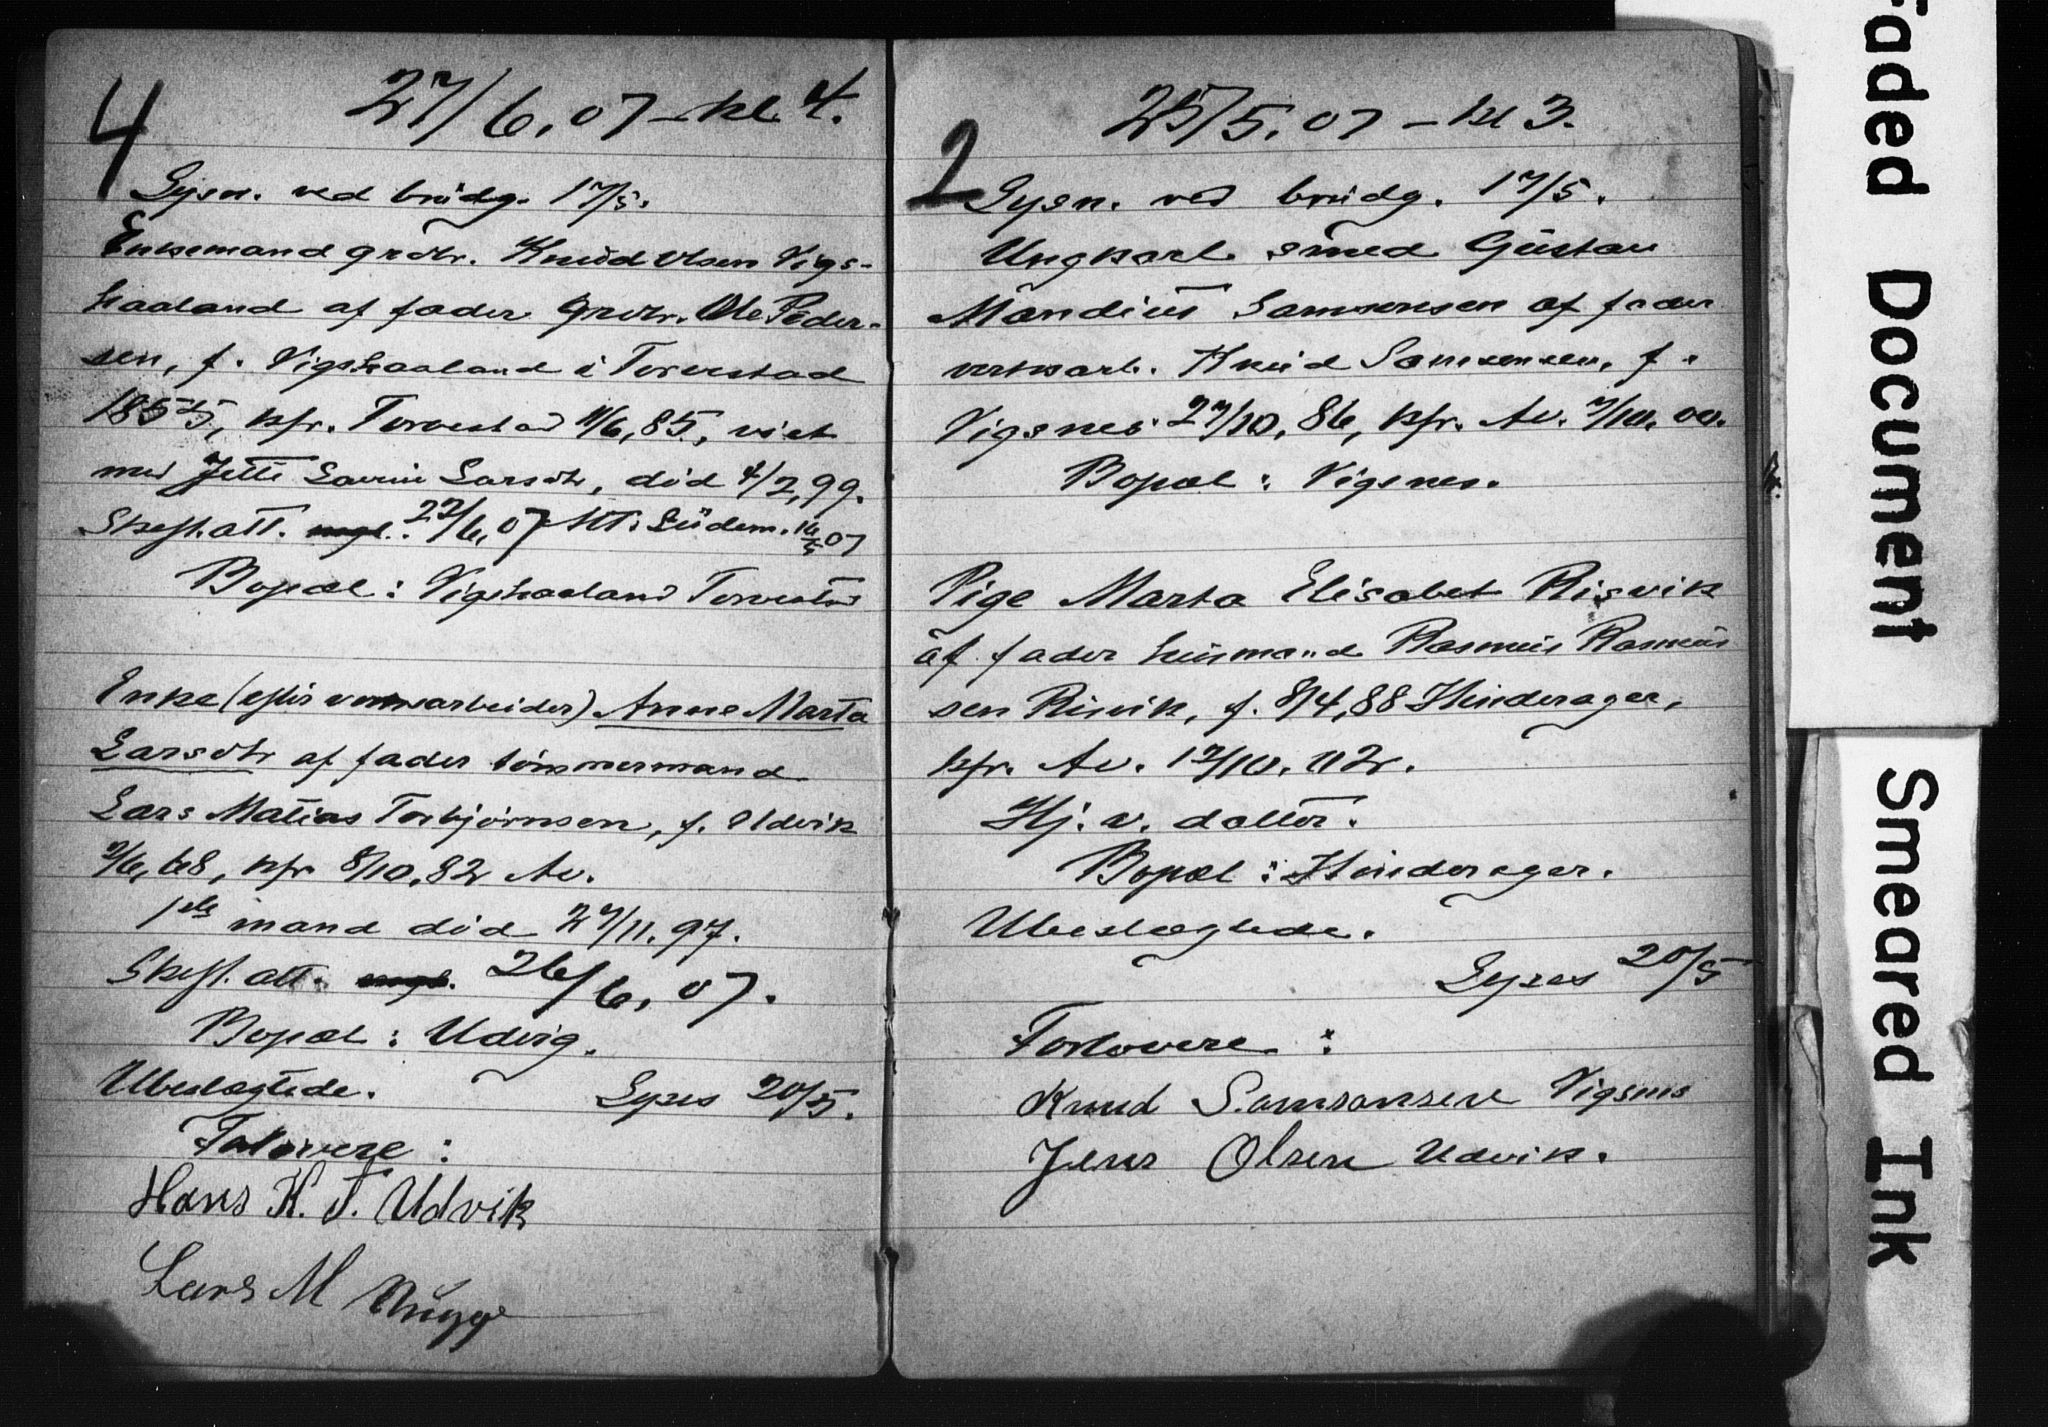 4
27/6. 07 - kl 4.
Lysn. ved brudg. 17/5.
Enkemand grdbr. Knud Olsen Vigs-
haaland af fader grdbr. Ole Peder-
sen, f. Vigshaaland i Torvestad
1855, kfr. Torvestad 11/6, 85, viet
med Jette Lavine Larsdtr, död 4/2, 99.
Skift. att. mgl. 22/6, 07 Att. Lüdem. 16/5 07
Bopæl : Vigshaaland Torvestad
Enke (efter verksarbeider) Anne Marta
Larsdtr af fader tömmermand
Lars Matias Torbjörnsen, f. Udvik
2/6, 68, kfr 8/10, 82 Av.
1ste mand död 27/11. 97.
Skift. att. mgl. 26/6, 07.
Bopæl : Udvig.
Ubeslægtede. Lyses 20/5.
Forlovere :
Hans K. T. Udvik
Lars M
2
25/5. 07 - kl 3.
Lysn. ved brudg. 17/5.
Ungkarl smed Gustav
Mandius Samsonsen af fader
verksarb. Knud Samsonsen, f.
Vigsnes 27/10, 86, kfr. Av. 7/10. 00.
Bopæl : Vigsnes.
Pige Marta Elisabet Risvik
af fader husmand Rasmus Rasmus
sen Risvik, f. 8/4, 88 Hinderager,
kfr. Av. 12/10. 02.
Hj. v. datter.
Bopæl : Hinderager.
Ubeslægtede.
Lyses 20/5
Forlovere :
Knud Samsonsen Vigsnes
Jens Olsen Udvik.
Faded Document
Smeared Ink